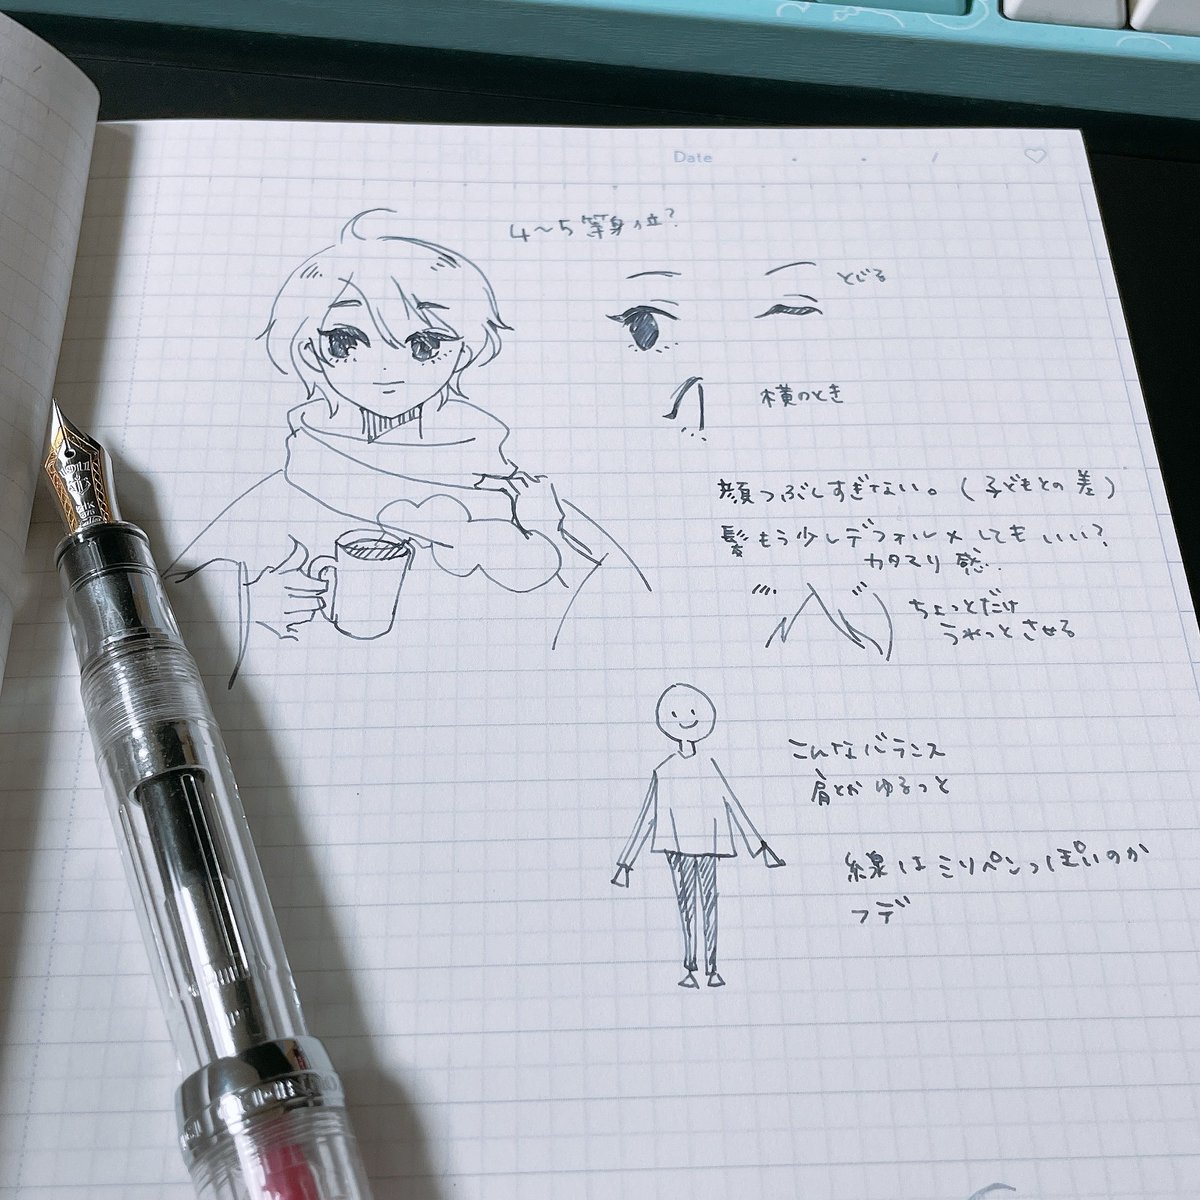 Date
4〜5等身位?
とじる
横のとき
顔つぶしすぎない。(子どもとの差)
髪もう少しデフォルメしてもいい?
カタマリ感..
ちょっとだけ
うねっとさせる
こんなバランス
肩とかゆるっと
線はミリペンっぽいのか
フデ